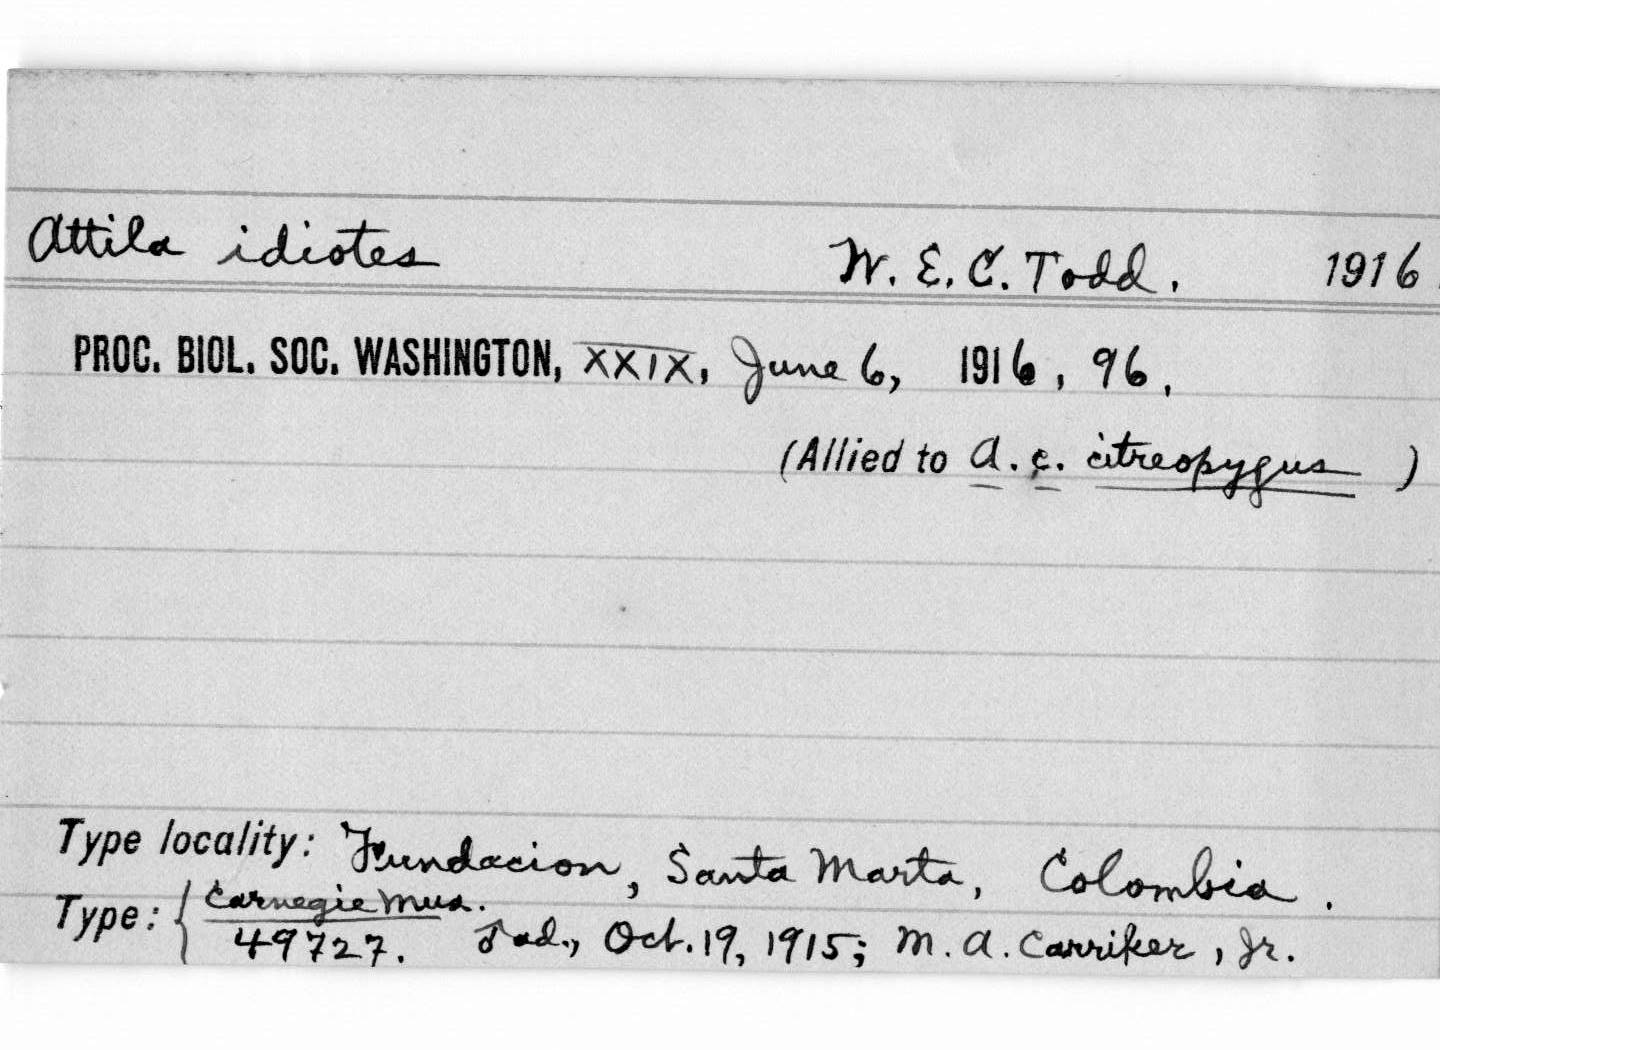 Attila idiotes W. E. C. Todd. 1916.
PROC. BIOL. SOC. WASHINGTON, XXIX, June 6, 1916, 96.
(Allied to A. c. citreopygus )
Type locality: Fundacion, Santa Marta, Colombia.
Type: { Carnegie Mus.
49727. ♂ ad., Oct. 19, 1915; M. A. Carriker, Jr.